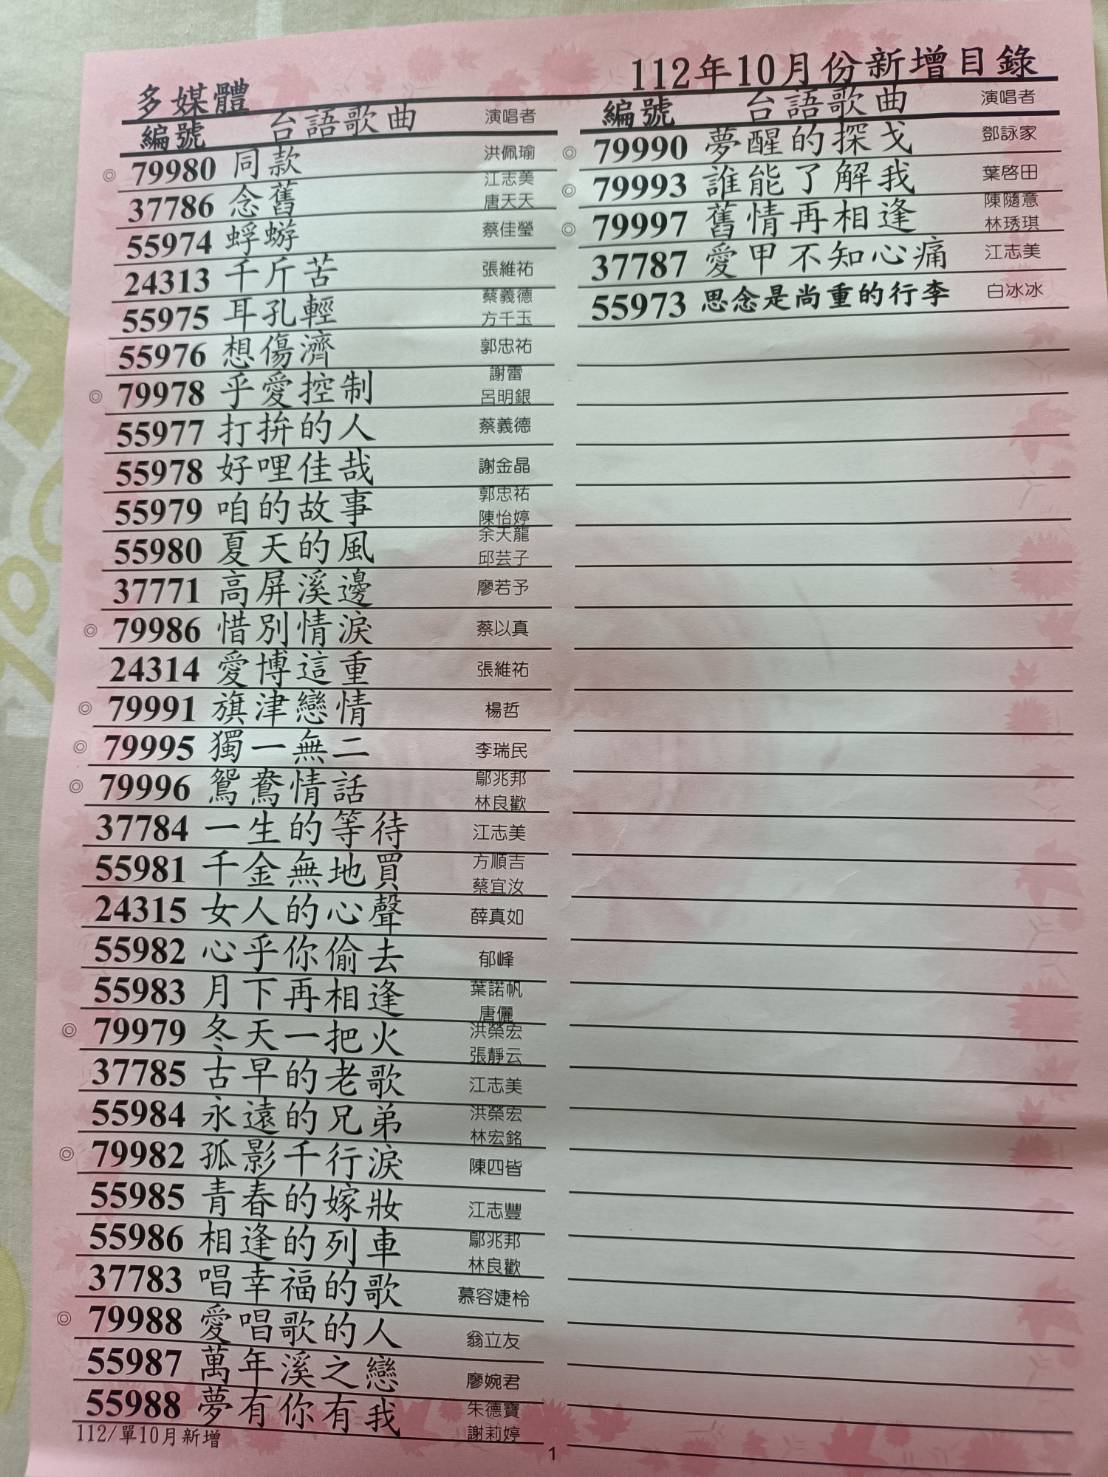 112年10月份新增目錄
多媒體
編號 台語歌曲 演唱者
◎ 79980 同款 洪佩瑜
37786 念舊 江志美 唐天天
55974 蜉蝣 蔡佳瑩
24313 千斤苦 張維祐
55975 耳孔輕 蔡義德 方千玉
55976 想傷濟 郭忠祐
◎ 79978 乎愛控制 謝雷 呂明銀
55977 打拚的人 蔡義德
55978 好哩佳哉 謝金晶
55979 咱的故事 郭忠祐 陳怡婷
55980 夏天的風 余天龍 邱芸子
37771 高屏溪邊 廖若予
◎ 79986 惜別情淚 蔡以真
24314 愛博這重 張維祐
◎ 79991 旗津戀情 楊哲
◎ 79995 獨一無二 李瑞民
◎ 79996 鴛鴦情話 鄔兆邦 林良歡
37784 一生的等待 江志美
55981 千金無地買 方順吉 蔡宜汝
24315 女人的心聲 薛真如
55982 心乎你偷去 郁峰
55983 月下再相逢 葉諾帆 唐儷
◎ 79979 冬天一把火 洪榮宏 張靜云
37785 古早的老歌 江志美
55984 永遠的兄弟 洪榮宏 林宏銘
◎ 79982 孤影千行淚 陳四皆
55985 青春的嫁妝 江志豐
55986 相逢的列車 鄔兆邦 林良歡
37783 唱幸福的歌 慕容婕柃
◎ 79988 愛唱歌的人 翁立友
55987 萬年溪之戀 廖婉君
55988 夢有你有我 朱德寶 謝莉婷
編號 台語歌曲 演唱者
◎ 79990 夢醒的探戈 鄧詠家
◎ 79993 誰能了解我 葉啓田
◎ 79997 舊情再相逢 陳隨意 林琇琪
37787 愛甲不知心痛 江志美
55973 思念是尚重的行李 白冰冰
112/單10月新增
1